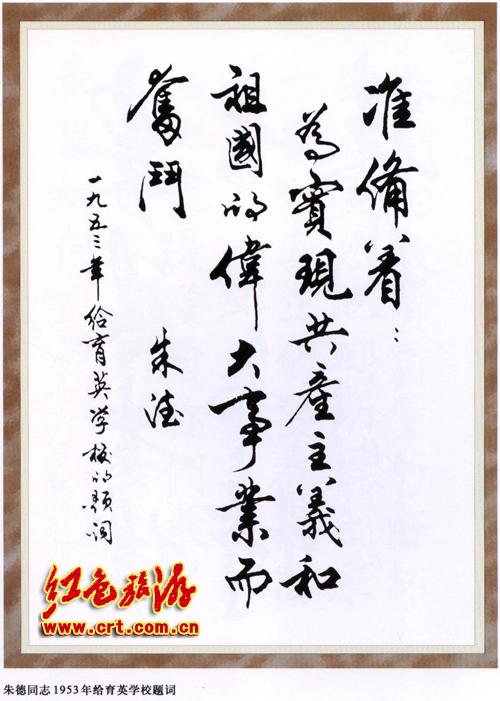 准備着：
為實現共産主義和
祖國的偉大事業而
奮鬥
朱德
一九五三年给育英学校的题词
红色旅游
www.crt.com.cn
朱德同志1953年给育英学校题词